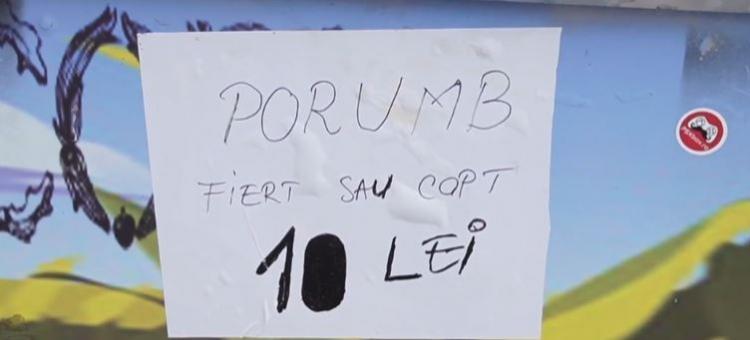 PORUMB
FIERT SAU COPT
10 LEI